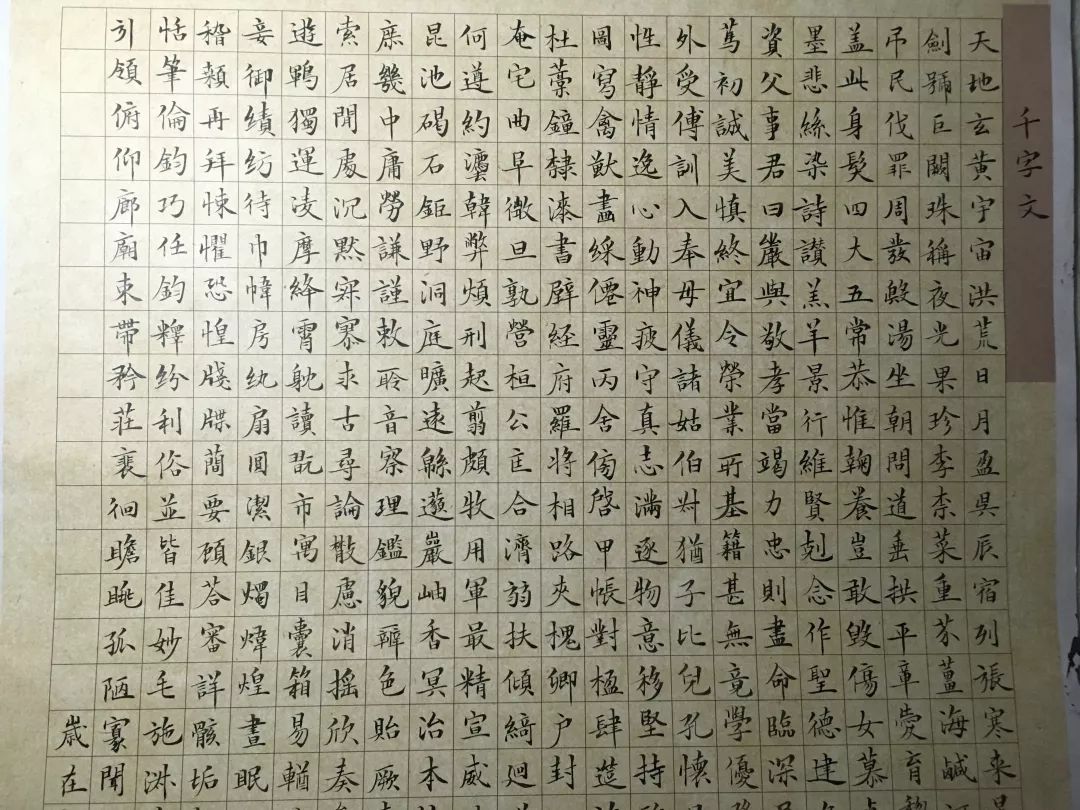 千字文
天地玄黃宇宙洪荒日月盈昃辰宿列張寒來
劍號巨闕珠稱夜光果珍李柰菜重芥薑海鹹
弔民伐罪周發殷湯坐朝問道垂拱平章愛育
蓋此身髮四大五常恭惟鞠養豈敢毀傷女慕
墨悲絲染詩讚羔羊景行維賢剋念作聖德建
資父事君曰嚴與敬孝當竭力忠則盡命臨深
篤初誠美慎終宜令榮業所基籍甚無竟學優
外受傅訓入奉母儀諸姑伯叔猶子比兒孔懷
性靜情逸心動神疲守真志滿逐物意移堅持
圖寫禽獸畫綵僊靈丙舍傍啓甲帳對楹肆筵
杜稾鐘隸漆書壁経府羅將相路夾槐卿戶封
奄宅曲阜微旦孰營桓公匡合濟弱扶傾綺迴
何遵約灋韓弊煩刑起翦頗牧用軍最精宣威
昆池碣石鉅野洞庭曠遠緜邈巖岫香冥治本
庶幾中庸勞謙謹敕聆音察理鑑貌辯色貽厥
索居閒處沉默寂寥求古尋論散慮消搖欣奏
遊鵾獨運淩摩絳霄耽讀翫市寓目囊箱易輶
妾御績紡待巾幃房紈扇圓潔銀燭煒煌晝眠
稽顙再拜悚懼恐惶牋牒簡要顧答審詳骸垢
恬筆倫鈞巧任鈞釋紛利俗並皆佳妙毛施淑
引領俯仰廊廟束帶矜莊裴徊瞻眺孤陋寡聞
歲在